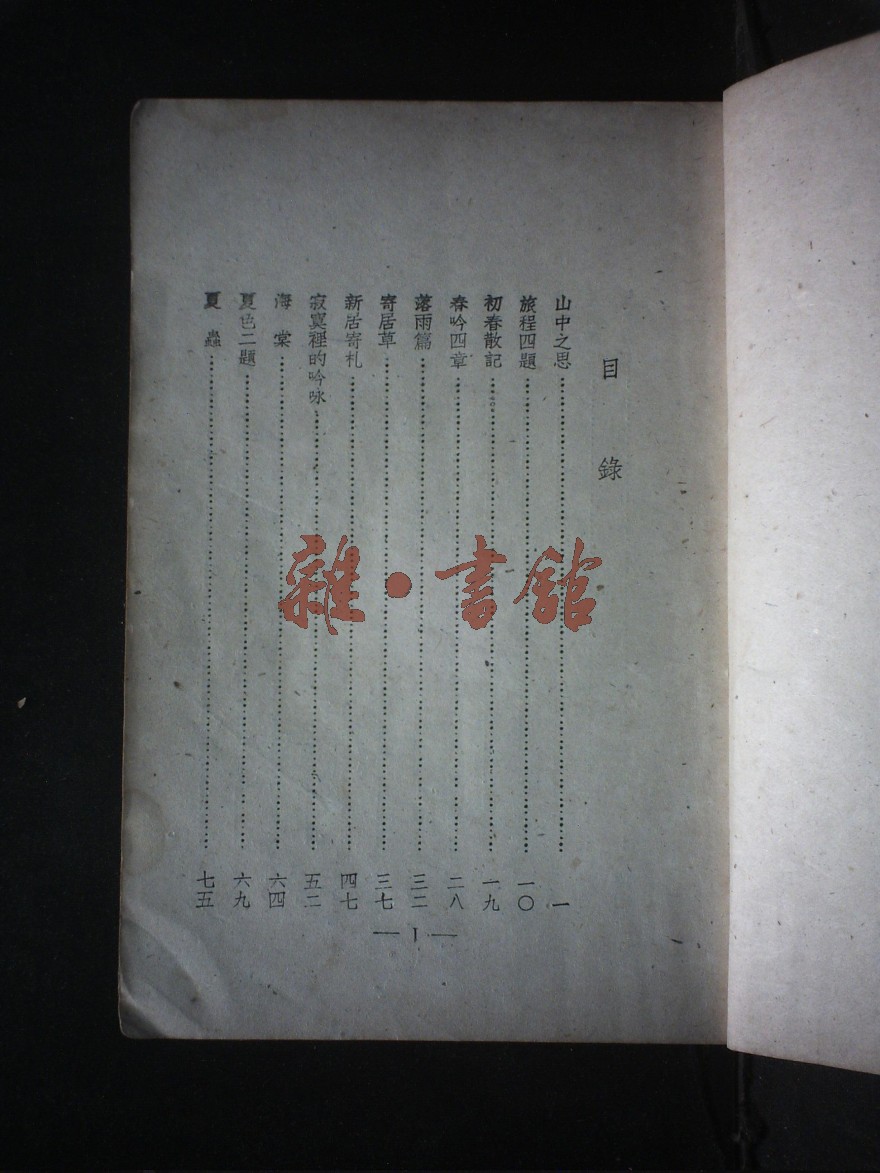 目錄
山中之思…………一
旅程四題…………一〇
初春散記…………一九
春吟四章…………二八
落雨篇…………三二
寄居草…………三七
新居寄札…………四七
寂寞裡的吟咏…………五二
海棠…………六四
夏色二題…………六九
夏蟲…………七五
— I —
雜·書館